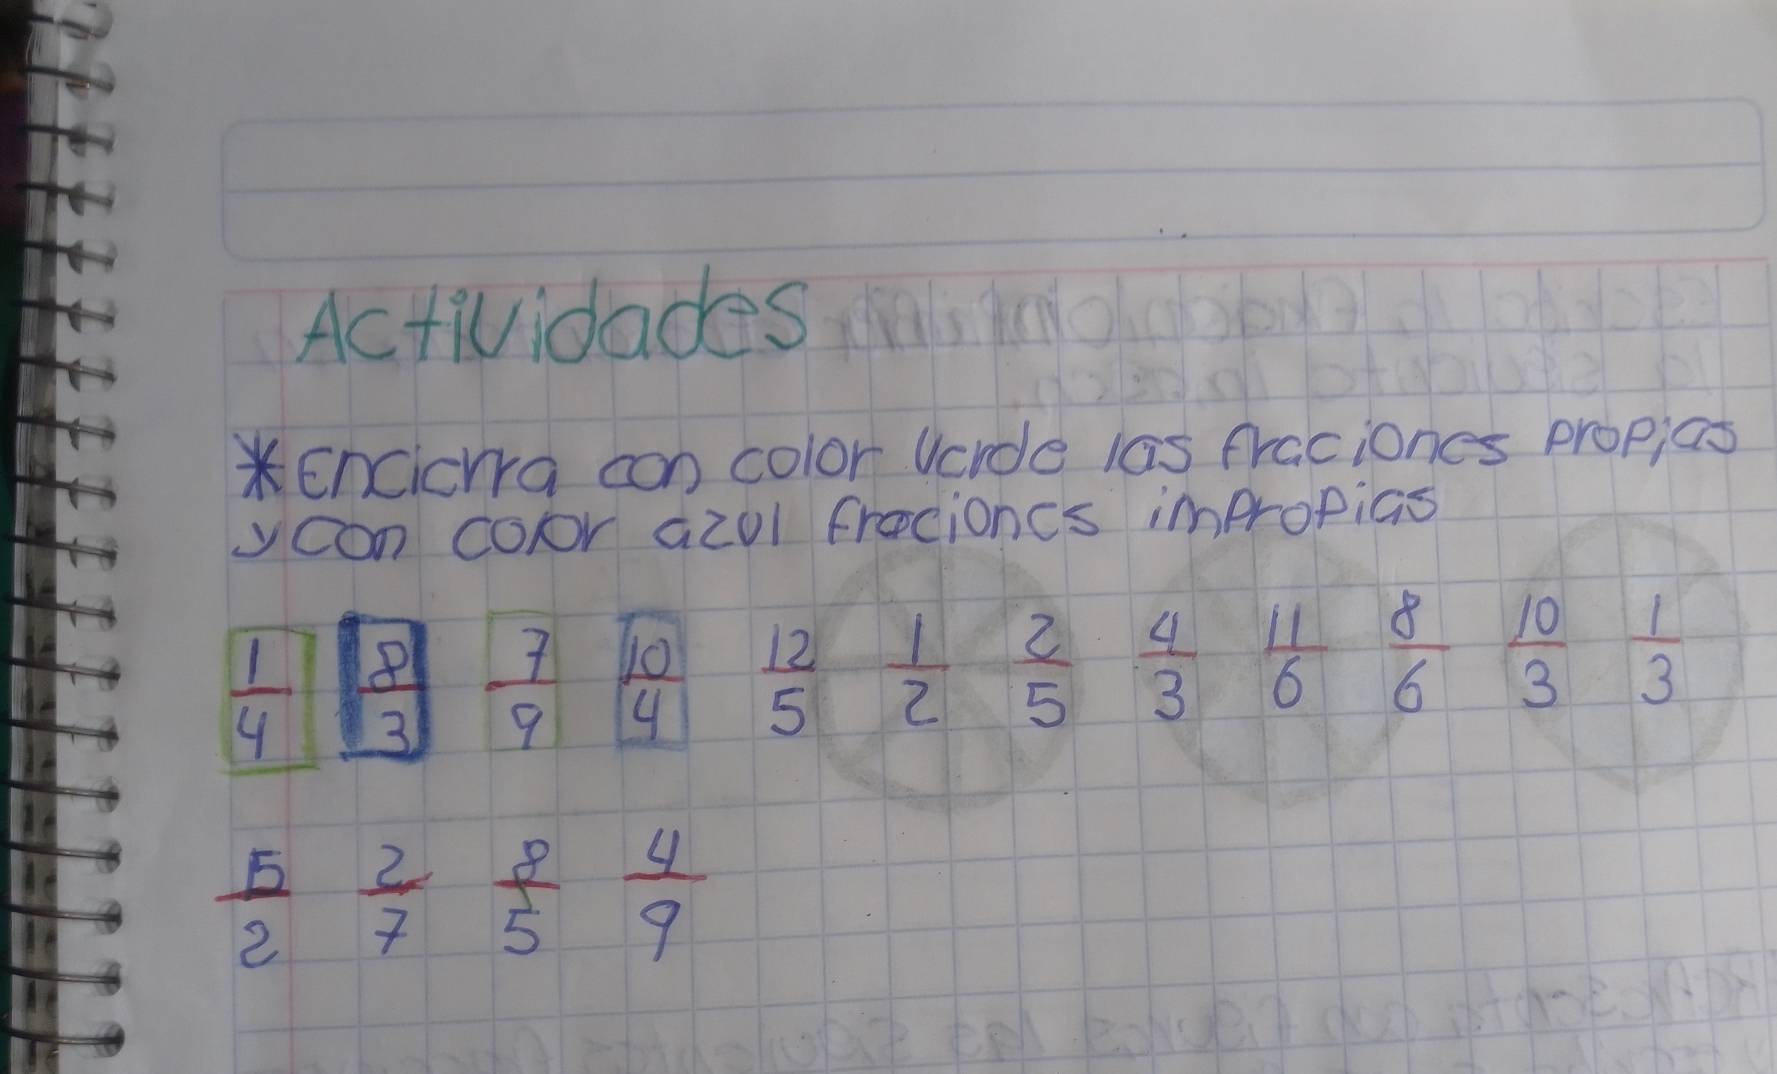 Actividades
*Encierra con color verde las fracciones propias
y con color azul fraciones impropias
1/4 8/3 7/9 10/4 12/5 1/2 2/5 4/3 11/6 8/6 10/3 1/3
5/2 2/7 8/5 4/9